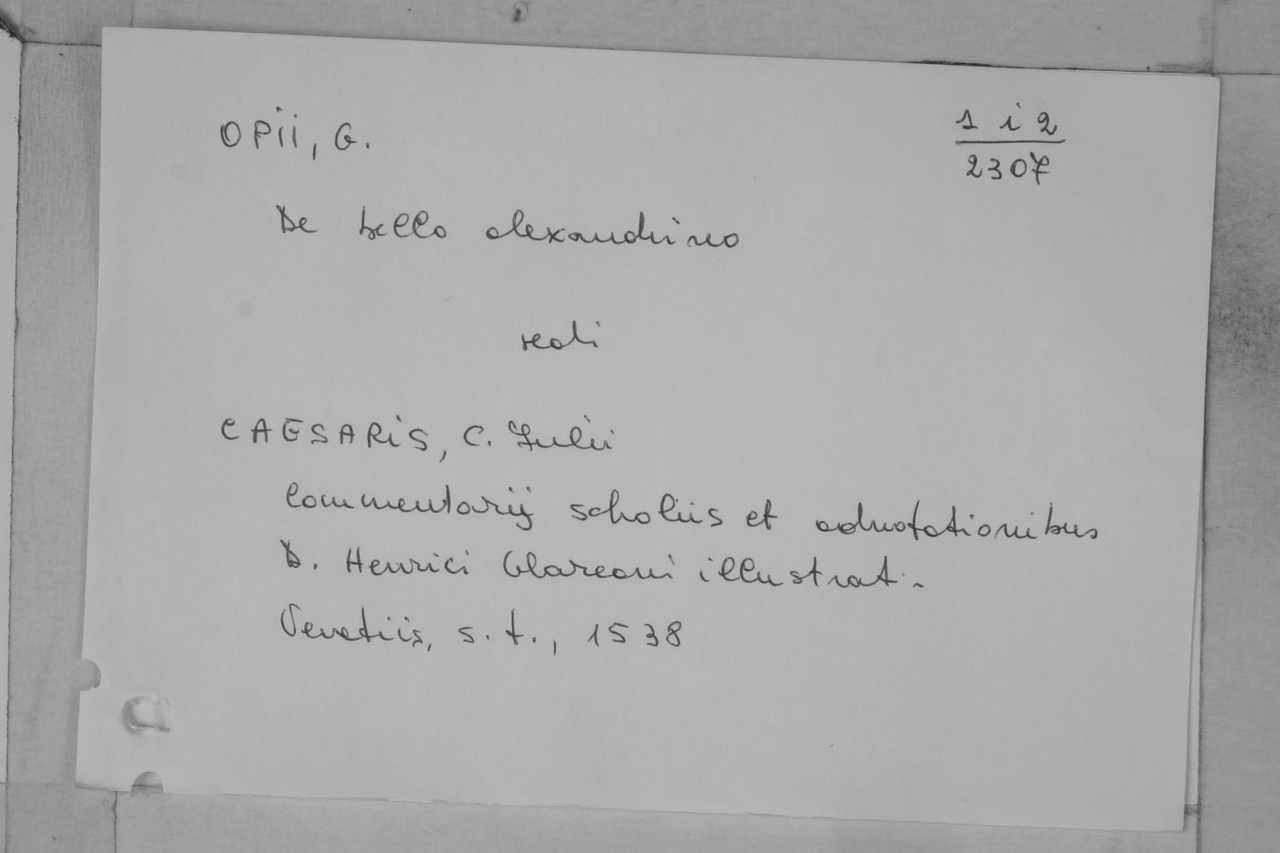 OPII, G.
1 i 2
2307
De bello alexandrino
vedi
CAESARIS, C. Julii
Commentarij scholiis et adnotationibus
D. Henrici Glareani illustrati.
Venetiis, s. t., 1538